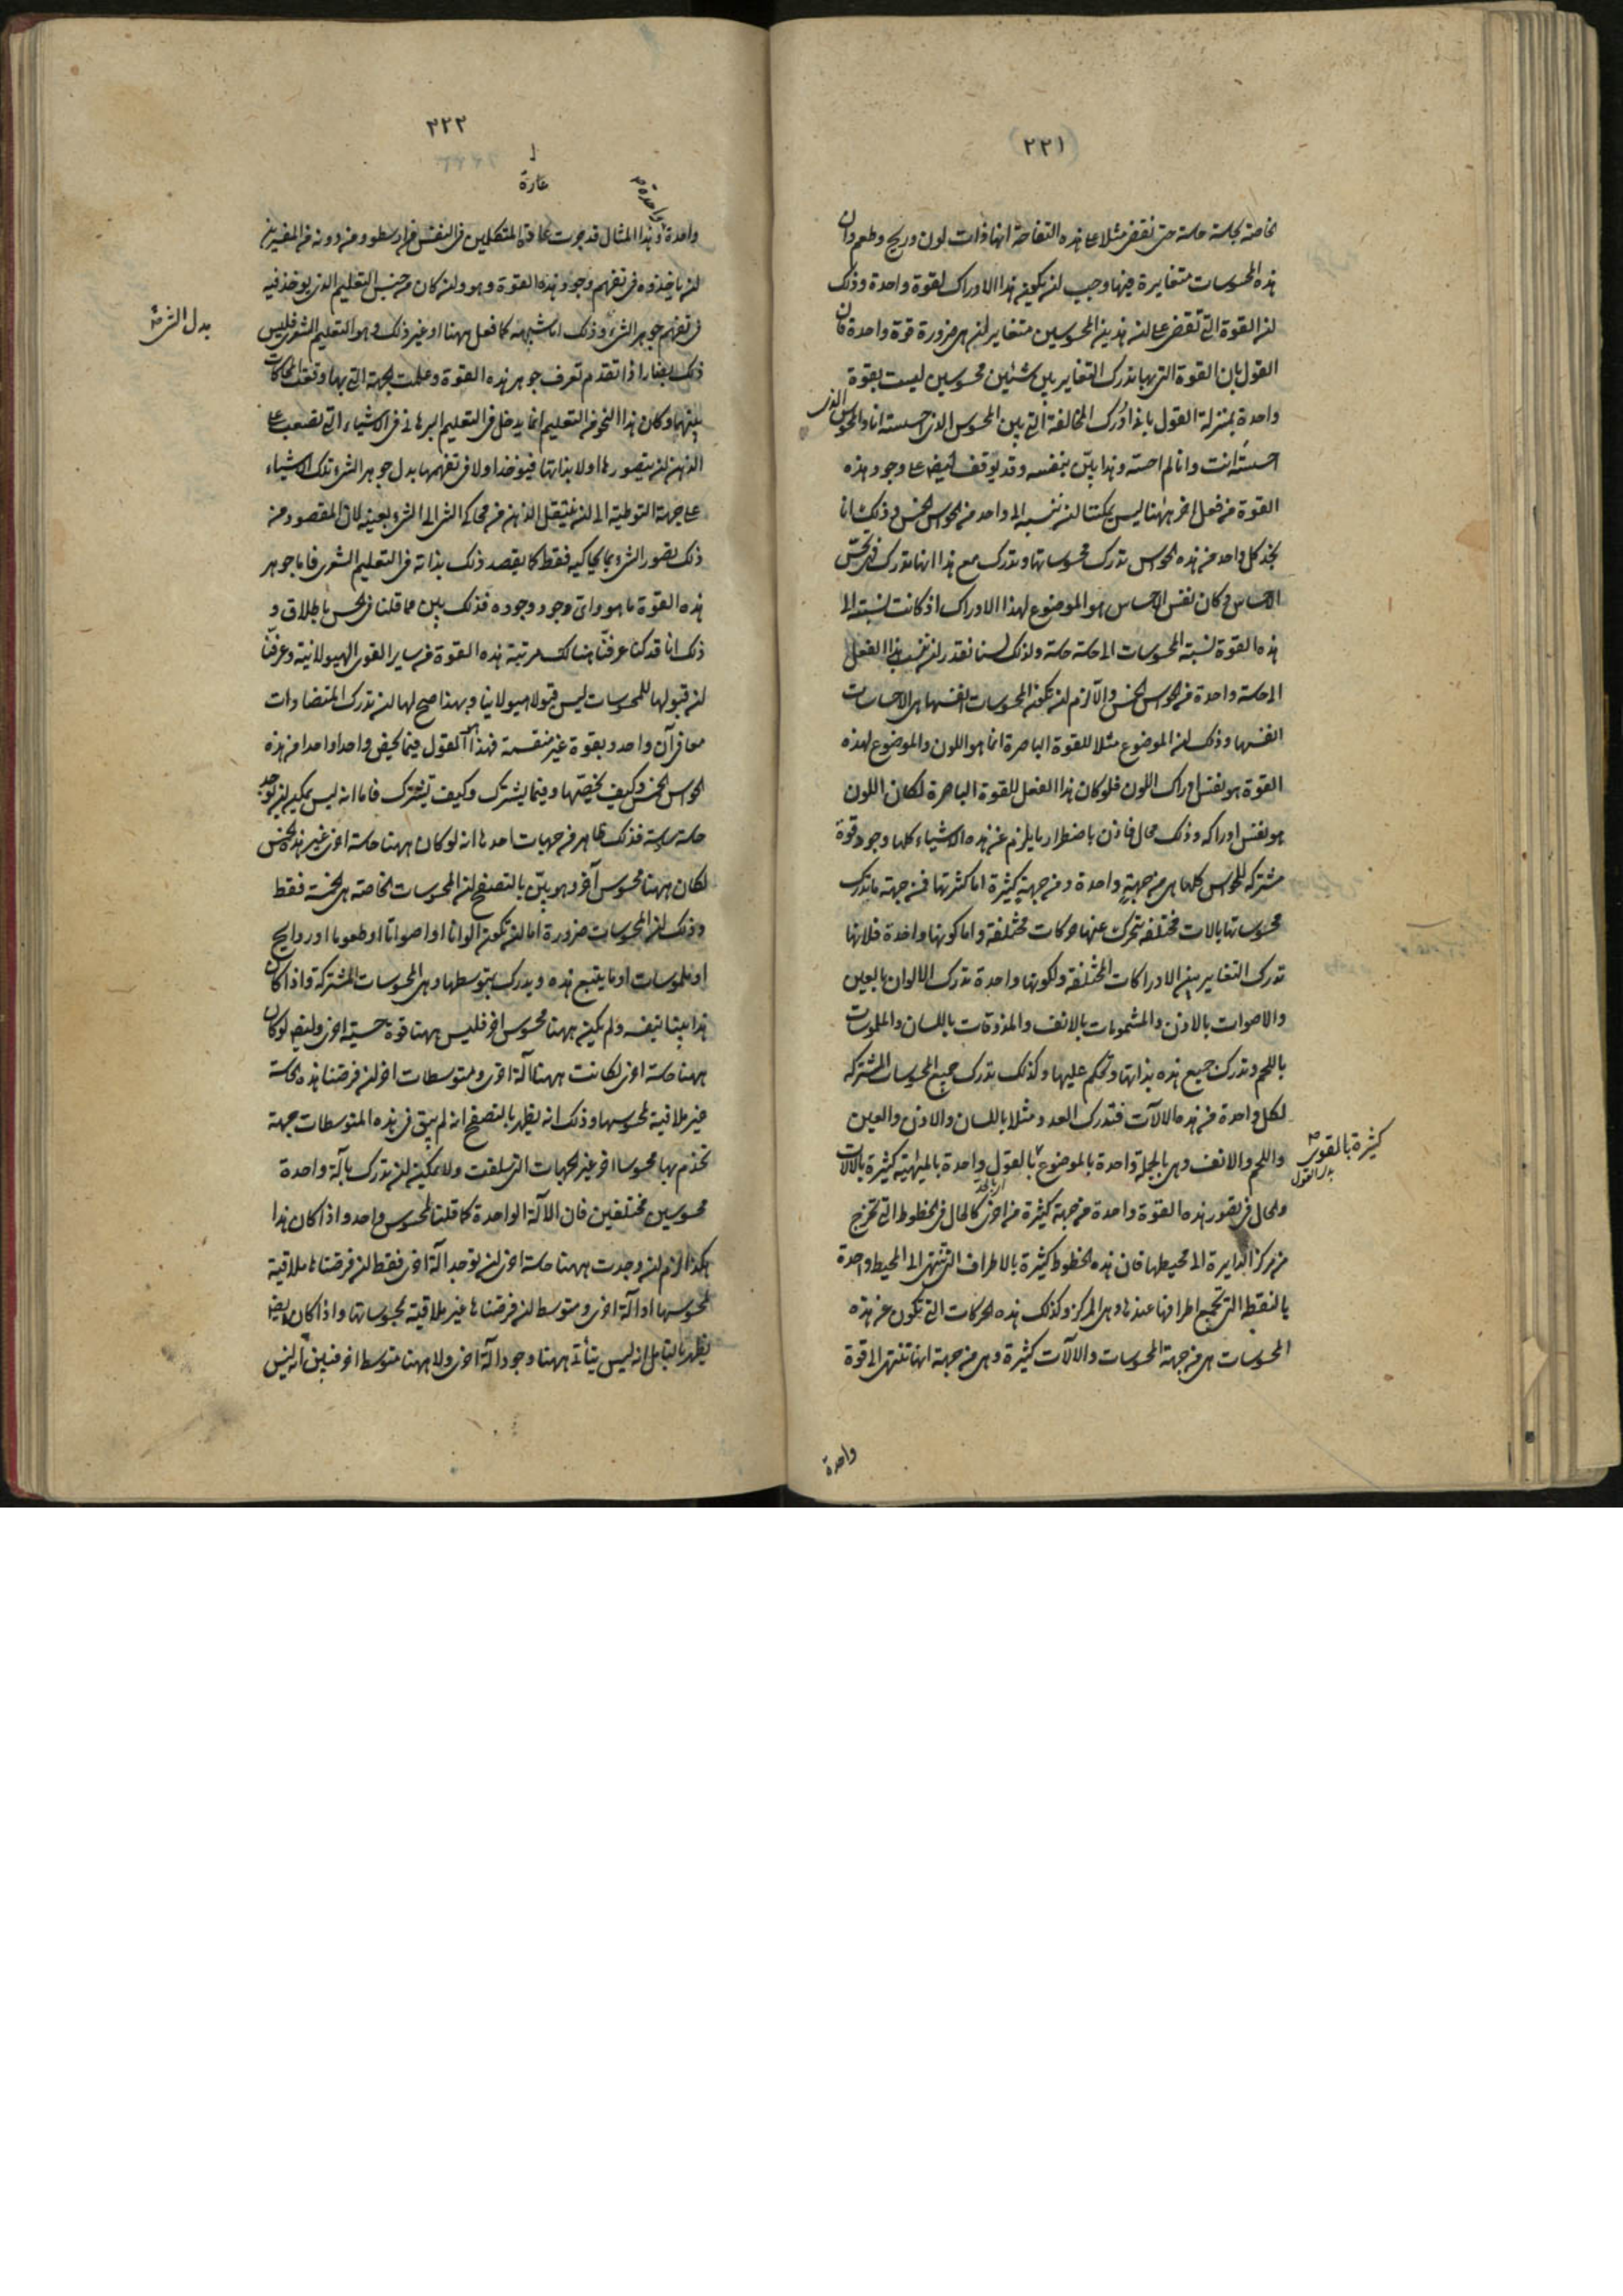 (٢٢١)
الخاصة بحاسة حاسة حتى نقضى مثلا على هذه التفاحة انها ذات لون وريح وطعم وان
هذه المحسوسات متغايرة فيها وجب ان يكون هذا الادراك لقوة واحدة وذلك
ان القوة التى تقضى على ان هذين المحسوسين متغايران هى ضرورة قوة واحدة فان
القول بان القوة التى بها تدرك التغاير بين شيئين محسوسين ليست بقوة
واحدة بمنزلة القول بانى ادرك المخالفة التى بين المحسوس الذى احسسته انا والمحسوس الذى
احسسته انت وانا لم احسه وهذا بيّن بنفسه وقد يوقف ايضا على وجود هذه
القوة من فعل اخر ههنا ليس يمكننا ان ننسبه الى واحد من الحواس الخمس وذلك انا
نجد كل واحد من هذه الحواس تدرك محسوساتها وتدرك مع هذا انها تدرك فهى تحس
الاحساس وكان نفس الاحساس هو الموضوع لهذا الادراك اذ كانت نسبته الى
هذه القوة نسبة المحسوسات الى حاسة حاسة ولذلك لسنا نقدر ان ننسب هذا الفعل
الى حاسة واحدة من الحواس الخمس والا لزم ان تكون المحسوسات انفسها هى الاحساسات
انفسها وذلك ان الموضوع مثلا للقوة الباصرة انما هو اللون والموضوع لهذه
القوة هو نفس ادراك اللون فلو كان هذا الفعل للقوة الباصرة لكان اللون
هو نفس ادراكه وذلك محال فاذن باضطرار ما يلزم عن هذه الاشياء كلها وجود قوة
مشتركة للحواس كلها هى من جهةٍ واحدة ومن جهةٍ كثيرة اما كثرتها فمن جهة ما تدرك
محسوساتها بالات مختلفة تتحرك عنها حركات مختلفة واما كونها واحدة فلانها
تدرك التغاير بين الادراكات المختلفة ولكونها واحدة تدرك الالوان بالعين
والاصوات بالاذن والمشمومات بالانف والمذوقات باللسان والملموسات
باللحم وتدرك جميع هذه بذاتها وتحكم عليها وكذلك تدرك جميع المحسوسات المشتركة
لكل واحدة من هذه الالآت فتدرك العدد مثلا باللسان والاذن والعين
واللحم والانف وهى بالجملة واحدة بالموضوع بالقول واحدة بالماهية كثيرة بالالات
والحال فى تصور هذه القوة واحدة من جهة كثيرة من اخرى كالحال فى الخطوط التى تخرج
من مركز الدايرة الى محيطها فان هذه الخطوط كثيرة بالاطراف التى تنتهى الى المحيط واحدة
بالنقطة التى تجمع اطرافها عندها وهى المركز وكذلك هذه الحركات التى تكون عن هذه
المحسوسات هى من جهة المحسوسات والالآت كثيرة وهى من جهة انها تنتهى الى قوة
كثيرة بالقوى
بدل القول
واحدة
٢٢٢
عادة
واحدة
واحدة وهذا المثال قد جرت عادة المتكلمين فى النفس من ارسطو ومن دونه من المفسرين
ان ياخذوه فى تفهم وجود هذه القوة وهو وان كان من جنس التعليم الذى يوخذ فيه
فى تفهم جوهر الشئ وذلك اما شبيهه كما فعل ههنا او غير ذلك وهو التعليم الشعرى فليس
ذلك بضار اذا تقدم تعرف جوهر هذه القوة وعلمت الجهة التى بها وقعت المحاكات
بينهما وكان هذا النحو من التعليم انما يدخل فى التعليم البرهانى فى الاشياء التى تصعب على
الذهن ان يتصورها اولا بذاتها فيوخذ اولا فى تفهمها بدل جوهر الشئ تلك الاشياء
على جهة التوطية الى ان ينتقل الذهن من محاكى الشئ الى الشئ بعينه لا ان المقصود من
ذلك تصور الشئ بما يحاكيه فقط كما يقصد ذلك بذاته فى التعليم الشعرى فاما جوهر
هذه القوة ما هو واى وجود وجوده فذلك بيّن مما قلنا فى الحس باطلاق و
ذلك انا قد كنا عرفنا هنالك مرتبة هذه القوة من ساير القوى الهيولانية وعرفنا
ان قبولها للمحسوسات ليس قبولا هيولانيا وبهذا صح لها ان تدرك المتضادات
معا فى آن واحد وبقوة غير منقسمة فهذا القول فيما يخص واحدا واحدا من هذه
الحواس الخمس وكيف يخصها وفيما يشترك وكيف تشترك فاما انه ليس يمكن ان توجد
حاسة سادسة فذلك ظاهر من جهات احدها انه لو كان ههنا حاسة اخرى غير هذه الخمس
لكان ههنا محسوس آخر وهو بيّن بالتصفح ان المحسوسات الخاصة هى الخمسة فقط
وذلك ان المحسوسات ضرورة اما ان تكون الوانا او اصواتا او طعوما او روايح
او ملموسات او ما يتبع هذه ويدرك بتوسطها وهى المحسوسات المشتركة واذا كان
هذا بينا بنفسه ولم يكن ههنا محسوس اخر فليس ههنا قوة حسية اخرى وايضا لو كان
ههنا حاسة اخرى لكانت ههنا آلة اخرى ومتوسطات اخر ان فرضنا هذه الحاسة
غير ملاقية لمحسوسها وذلك انه يظهر بالتصفح انه لم يبق فى هذه المتوسطات جهة
تخدم بها محسوسا اخر غير الجهات التى سلفت ولا يمكن ان تدرك بآلة واحدة
محسوسين مختلفين فان الآلة الواحدة كما قلنا لمحسوس واحد واذا كان هذا
هكذا لزم ان وجدت ههنا حاسة اخرى ان توجد آلة اخرى فقط ان فرضناها ملاقية
لمحسوسها او آلة اخرى ومتوسط ان فرضناها غير ملاقية لمحسوساتها واذا كان ايضا
يظهر بالتامل انه ليس يتأتى ههنا وجود آلة اخرى ولا ههنا متوسط اخر فبين انه ليس
بدل الشئ